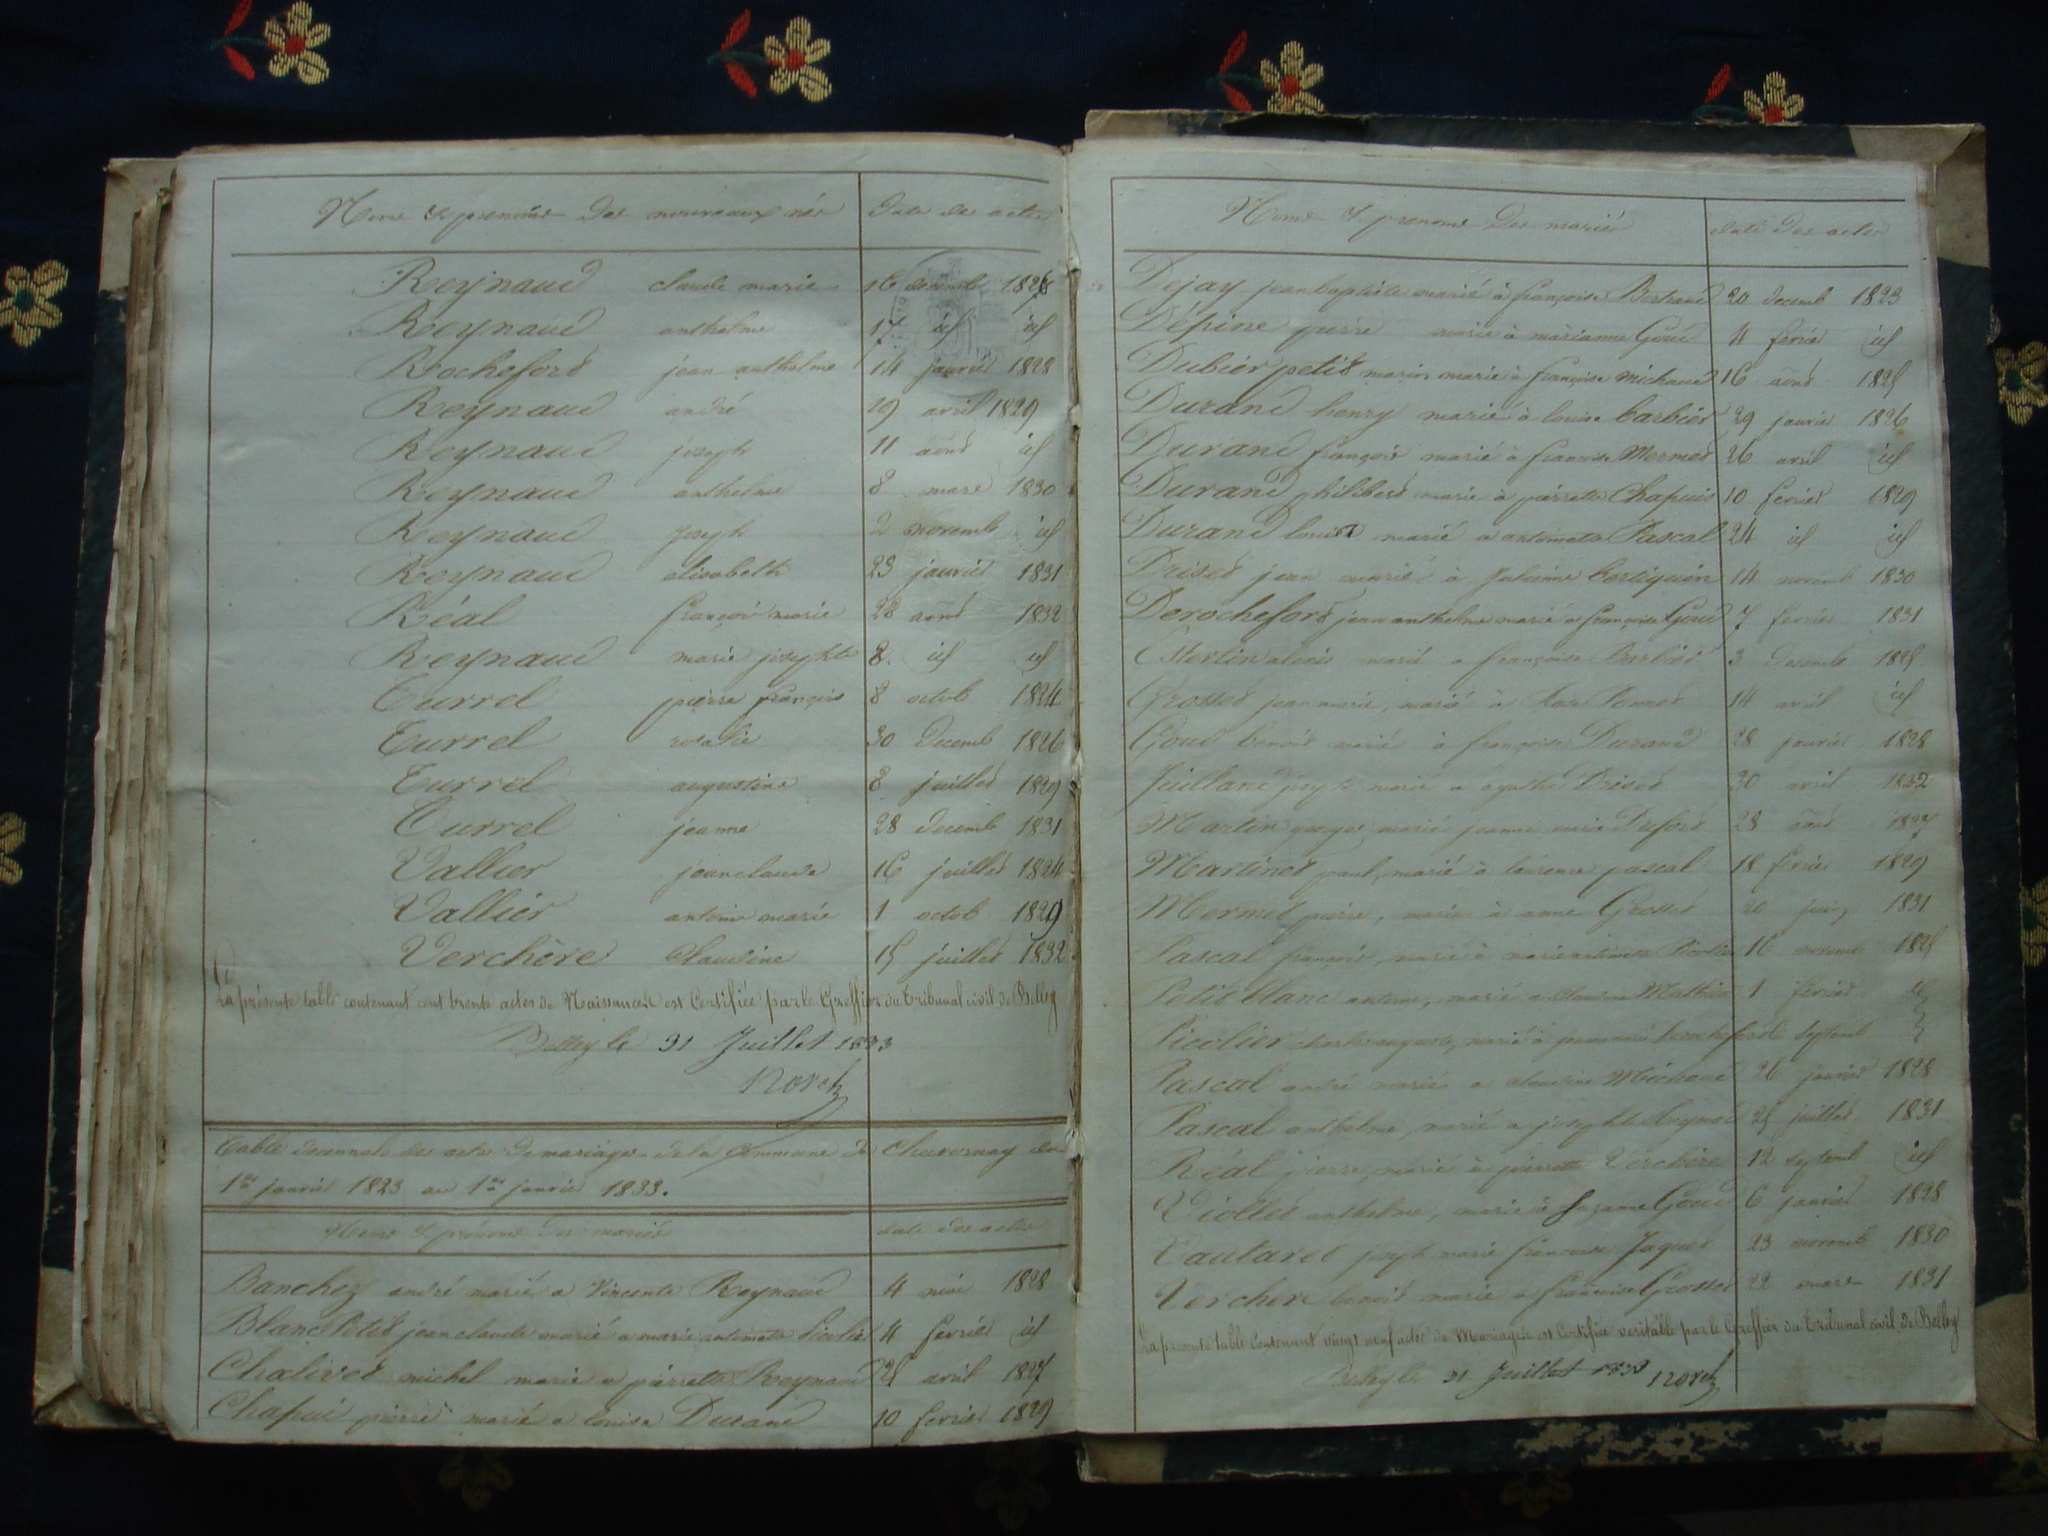 Noms & prenoms des nouveaux nés date des actes
Reynaud claude marie 16 décemb 1826
Reynaud anthelme 17 id id
Rocheford jean anthelme 14 janvier 1828
Reynaud andré 19 avril 1829
Reynaud joseph 11 aoud id
Reynaud anthelme 8 mars 1830
Reynaud joseph 2 novemb id
Reynaud elisabeth 23 janvier 1831
Réal françois marie 28 aoud 1832
Reynaud marie josephte 8. id id
Turrel pierre françois 8 octob 1824
Turrel rosalie 30 Decemb 1826
Turrel augustine 8 juilled 1829
Turrel jeanne 28 decemb 1831
Vallier jean claude 16 juilled 1824
Vallier antoine marie 1 octob 1829
Verchère Claudine 15 juilled 1832
La présente table contenant cent trente actes de Naissances est Certifiée par le Greffier du Tribunal civil de Belley
Belley le 31 Juillet 1833
Table decennale des actes de mariages de la Commune de Chavornay du
1er janvier 1823 au 1er janvier 1833.
Noms & prénoms des mariés date des actes
Banchez andré marié a Vincente Reynaud 4 1828
Blanc Petid jean claude marié a marie antoinette Picolied 4 fevrier id
Chalived michel marié a pierrette Reynaud 25 avril 1827
Chapui pierre marié a louise Durand 10 fevrier 1829
Noms & prenoms des mariés date des actes
Dejay jean baptiste marié à françoise Bertrand 20 decemb 1823
Dépine pierre marié à marianne Goud 4 février id
Dubier petid marin marié à françoise michaud 16 aoud 1825
Durand henry marié à louise barbier 29 janvier 1826
Durand françois marié à françoise Mermed 26 avril id
Durand philiberd marié à pierrette Chapuis 10 fevrier 1829
Durand louis marié a antoinette Pascal 24 id id
Drised jean marié à Julienne 14 novemb 1830
Derocheford jean anthelme marié a françoise Goud 7 fevrier 1831
alexis marié a françoise Barbier 3 Decemb 1825
Grossed jean marie, marié à Rose 14 avril id
Goud benoid marié à françoise Durand 28 janvier 1828
Juilland joseph marié a agathe Drised 30 avril 1832
Martin marié jeanne marie Duford 28 aoud 1827
Martined paul, marié à laurence pascal 18 février 1829
Mermed pierre, marié à anne Grossed 20 juin 1831
Pascal françois, marié à marie antoinette 16 1825
Petid blanc antoine, marié a claudine Mathieu 1 février id
Picolier charles auguste, marié à septemb
Pascal andré marié a claudine Michaud 26 janvier 1828
Pascal anthelme, marié a josephte 25 juilled 1831
Réal pierre, marié à pierrette Verchère 12 septemb id
Violled anthelme, marié à suzanne Goud 6 janvier 1828
Vautared joseph marié françoise Jaques 23 novemb 1830
Verchere benoid marié a françoise Grossed 22 mars 1831
La presente table contenant vingt neuf actes de Mariages est Certifiée veritable par le Greffier du Tribunal civil de Belley
Belley le 31 Juillet 1833